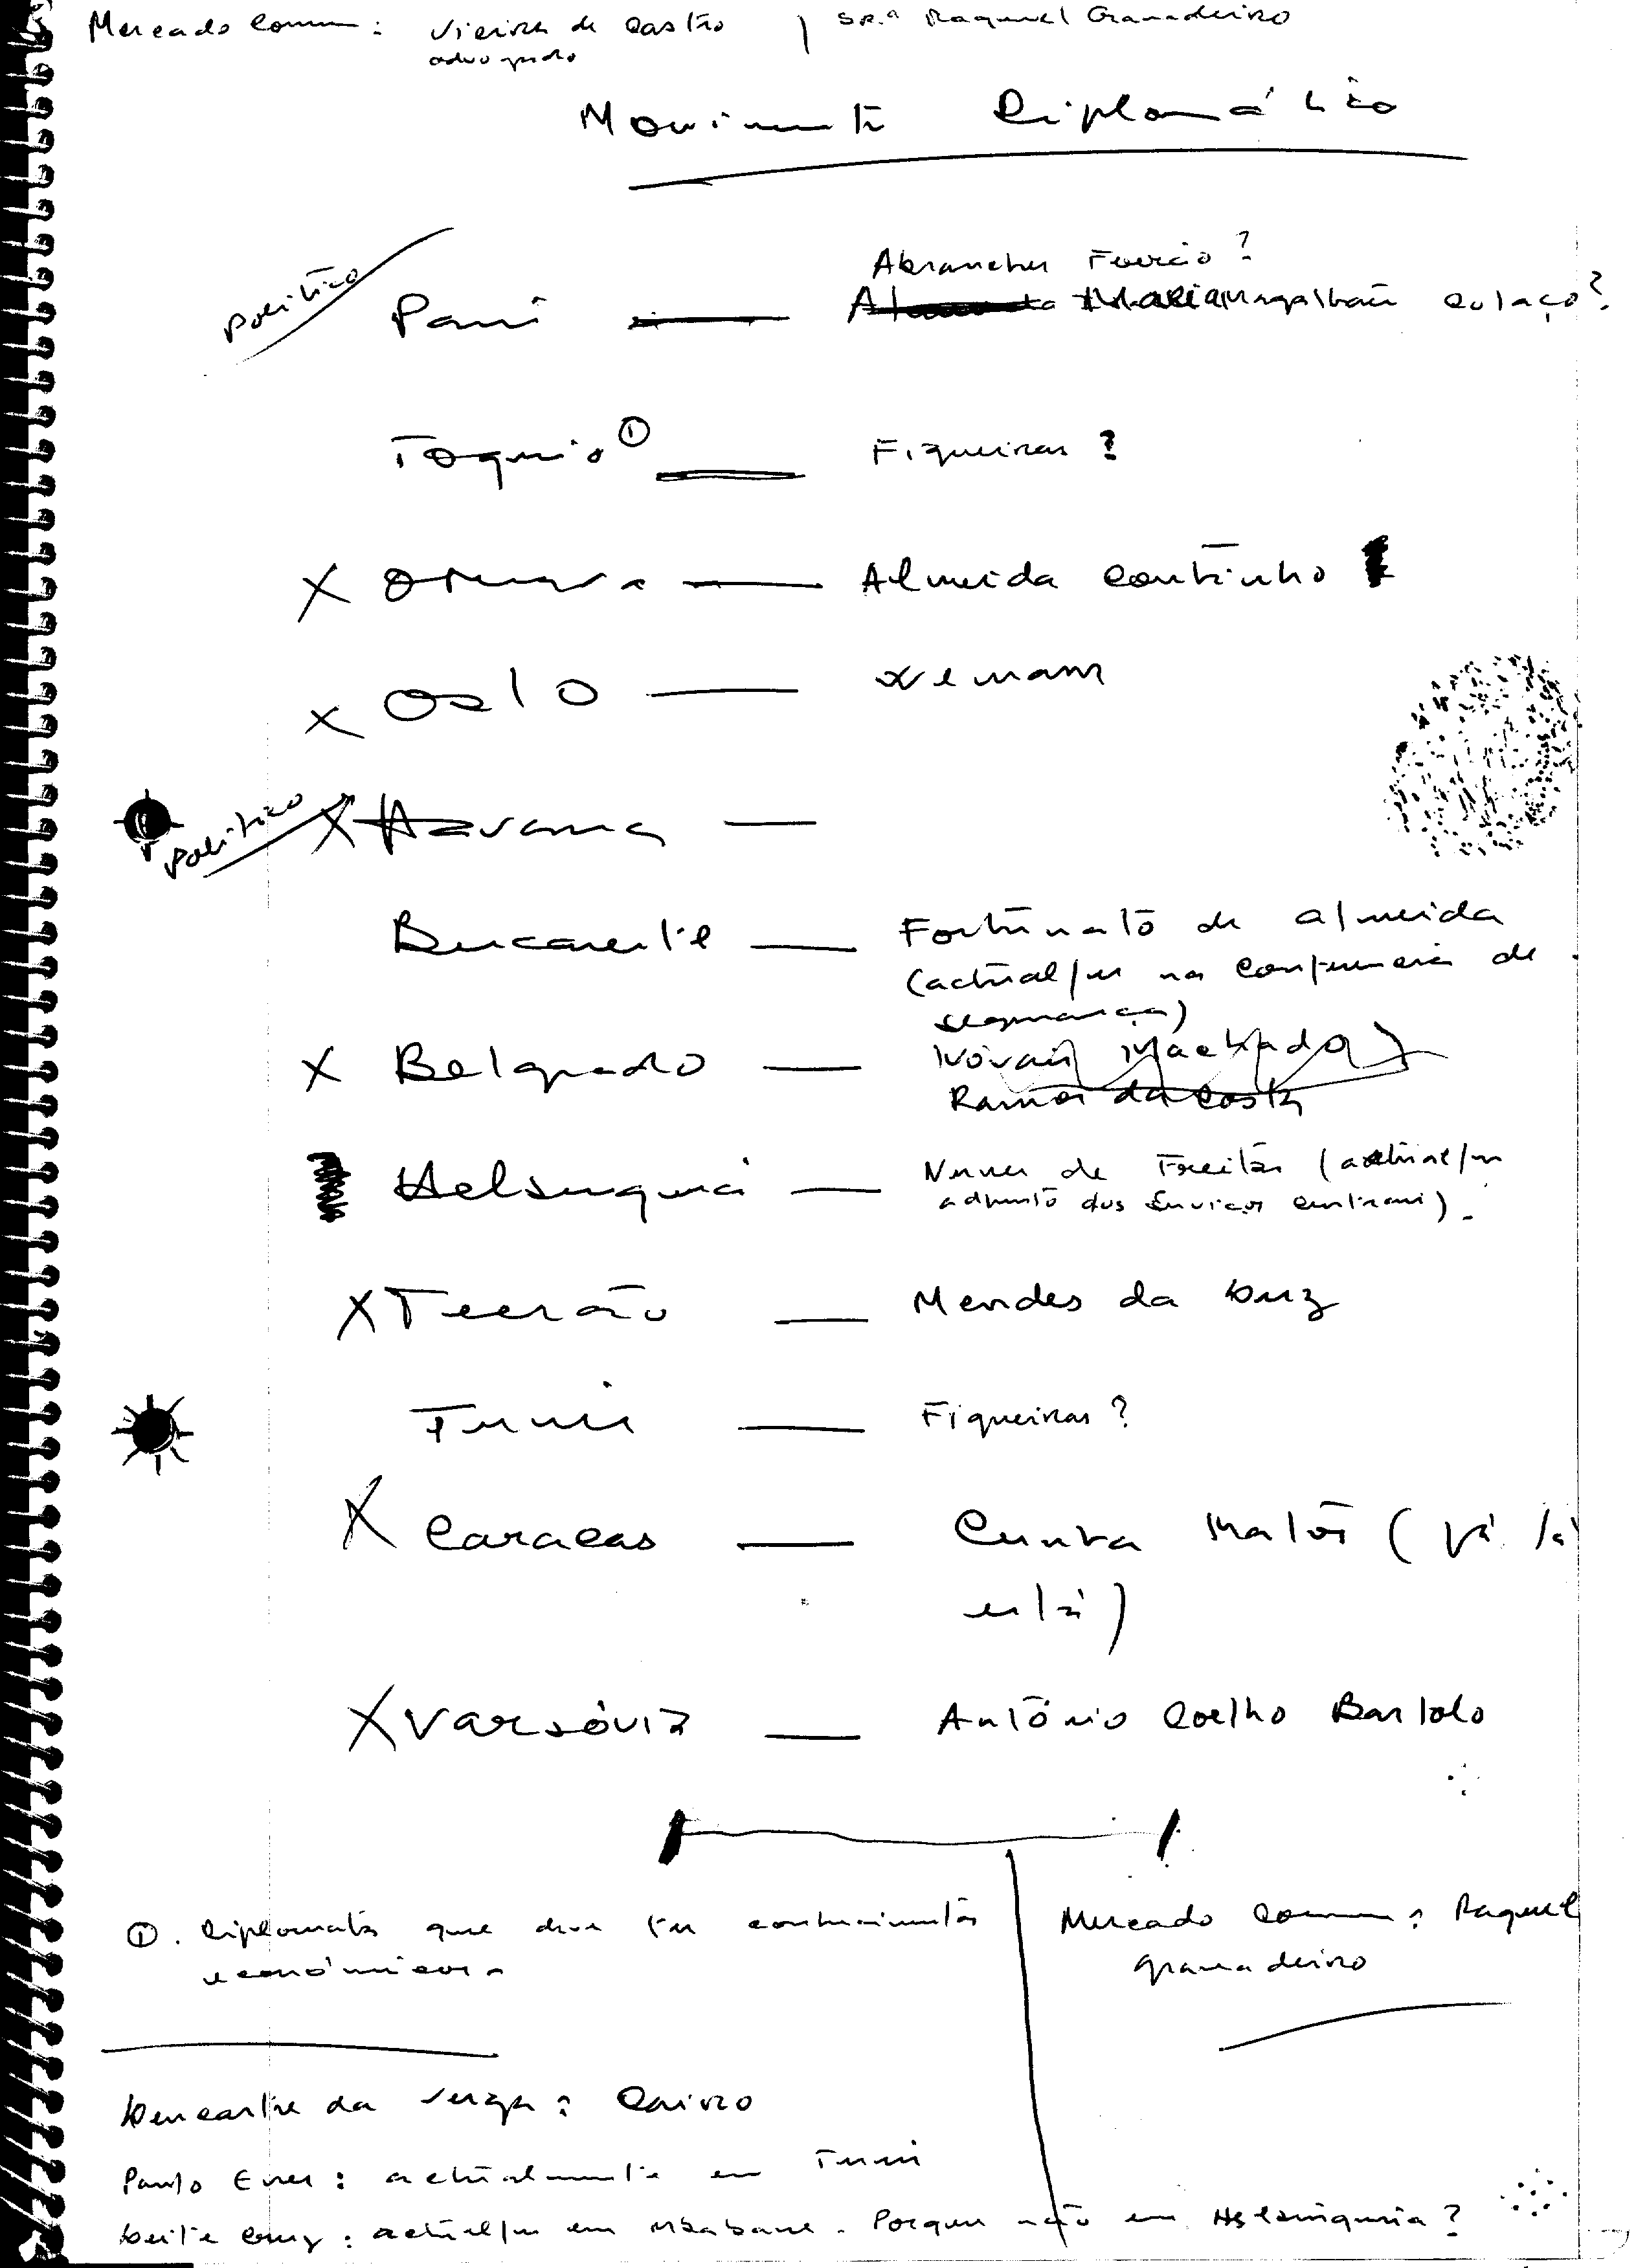 Mercado Comum: Vieira de Castro / Sr.ª Raquel Granadeiro
advogado
Movimento Diplomático
Abranches Feijão?
político Paris — Magalhães Colaço?
Toquio ① — Figueiras?
X Otava — Almeida Coutinho
X Oslo —
político X Havana —
Bucareste — Fortunato de Almeida
(actual/te na Conferência de
segurança)
X Belgrado — Novais Machado
Ramos da Costa
Helsínquia — Nunes de Freitas (actual/te
adjunto dos Serviços Centrais).
X Teerão — Mendes da Luz
Tunis — Figueiras?
X Caracas — Cunha Matos (já lá
está)
X Varsóvia — António Coelho Bartolo
①. Diplomata que deve ter conhecimentos
económicos.
Mercado Comum: Raquel
Granadeiro
Lencastre da Veiga: Cairo
Paulo Enes: actualmente em Tunis
Leite Cruz: actual/te em Mbabane. Porque não em Helsínquia?